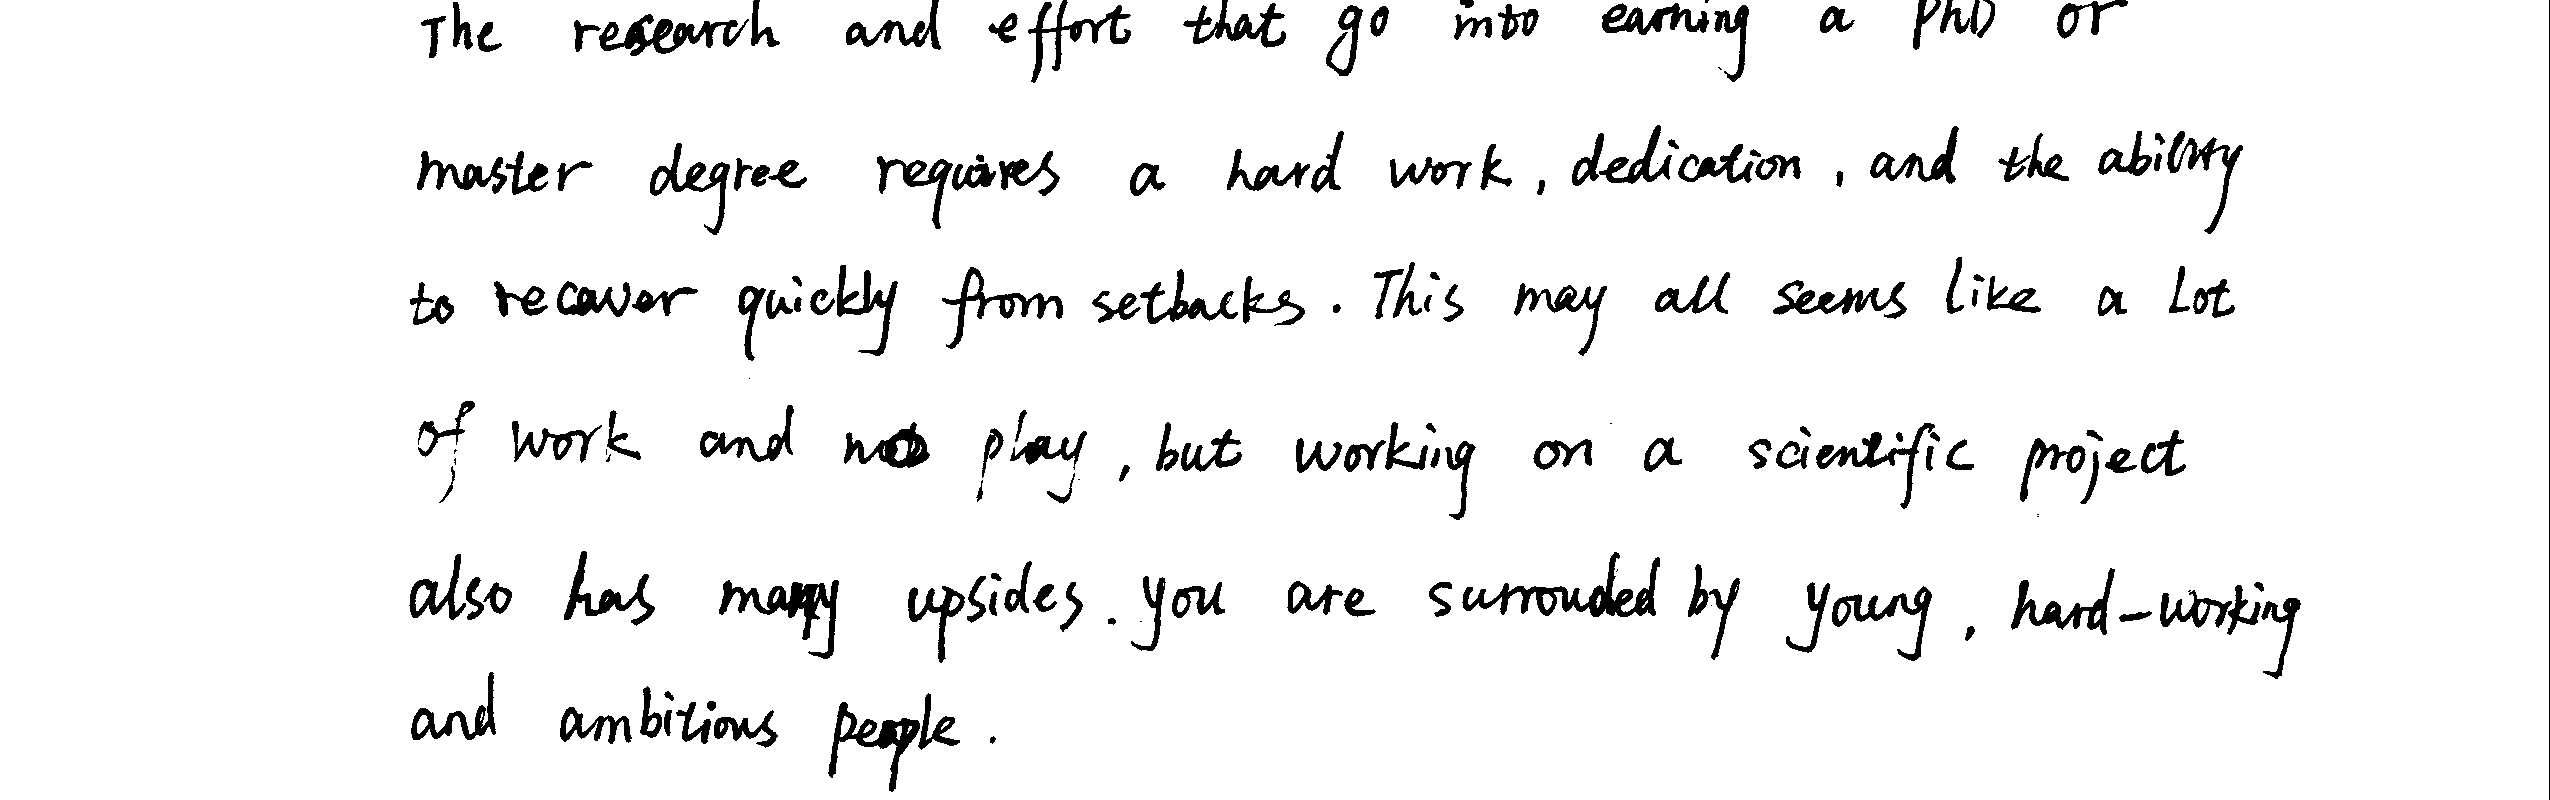 The research and effort that go into earning a PhD or
master degree requires a hard work, dedication, and the ability
to recover quickly from setbacks. This may all seems like a Lot
of work and no play, but working on a scientific project
also has many upsides. You are surrouded by young, hard-working
and ambitious people.